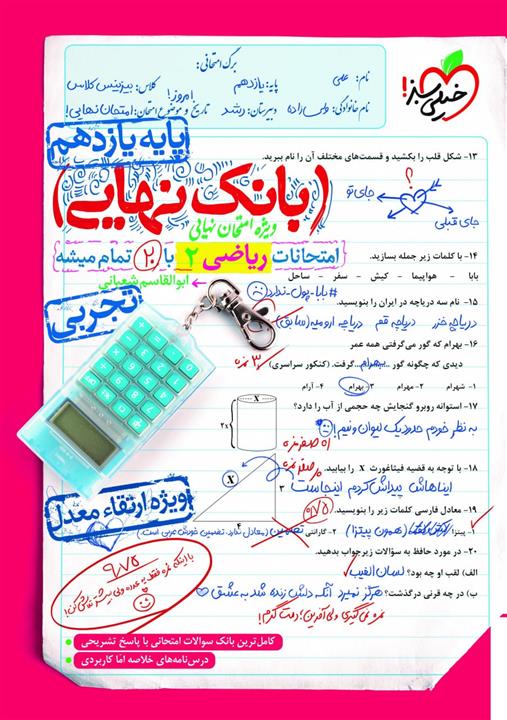 خیلی سبز!
برگ امتحانی:
نام: علی
پایه: یازدهم
کلاس: بیزینس کلاس
نام خانوادگی:
دبیرستان: رشد
تاریخ و موضوع امتحان: امروز! امتحان نهایی!
پایه یازدهم
۱۳- شکل قلب را بکشید و قسمت‌های مختلف آن را نام ببرید.
؟
جای تو
جای قبلی
(بانک نهایی)
ویژه امتحان نهایی
امتحانات ریاضی ۲ با ۲۰ تمام میشه
ابوالقاسم شعبانی
تجربی
۱۴- با کلمات زیر جمله بسازید.
بابا - هواپیما - کیش - سفر - ساحل
#بابا-پول-ندارد
۱۵- نام سه دریاچه در ایران را بنویسید.
دریاچه خزر دریاچه قم دریاچه ارومیه (سابق)
۱۶- بهرام که گور می‌گرفتی همه عمر
دیدی که چگونه گور ...بهرام... گرفت. (کنکور سراسری)
۳ نمره
۱- شهرام ۲- مهرام ۳- بهرام ۴- آرام
۱۷- استوانه روبرو گنجایش چه حجمی از آب را دارد؟
X
2x
به نظر خودم حدود یک لیوان و نیم!
۱۸- با توجه به قضیه فیثاغورث X را بیابید.
X
۳
۴
ایناهاش پیداش کردم اینجاست
۱۹- معادل فارسی کلمات زیر را بنویسید.
۰/۷۵
۱- پیتزا (همون پیتزا) ۲- گارانتی تضمین (معادل ندارد. تضمین خودش عربی است.)
ویژه ارتقاء معدل
۲۰- در مورد حافظ به سؤالات زیر جواب بدهید.
الف) لقب او چه بود؟ لسان الغیب
ب) در چه قرنی درگذشت؟ هرگز نمیرد آنکه دلش زنده شد به عشق
نمره نمی‌گیری ولی آفرین؛ دمت گرم!
۹/۷۵
با اینکه نمره فقط یه عدده ولی بیشتر تلاش کن!
کامل‌ترین بانک سوالات امتحانی با پاسخ تشریحی
درس‌نامه‌های خلاصه امّا کاربردی